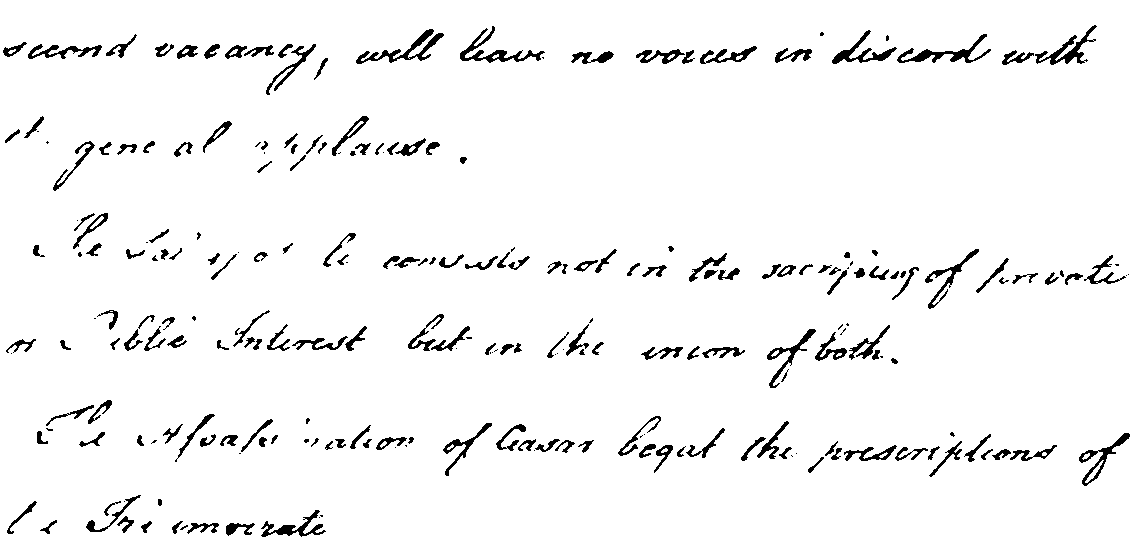 second vacancy, will leave no voices in discord with
the general applause.
The Safety of the consists not in the sacrificing of private
or Public Interest but in the union of both.
The Assassination of Ceasar begat the prescriptions of
the Triumverate